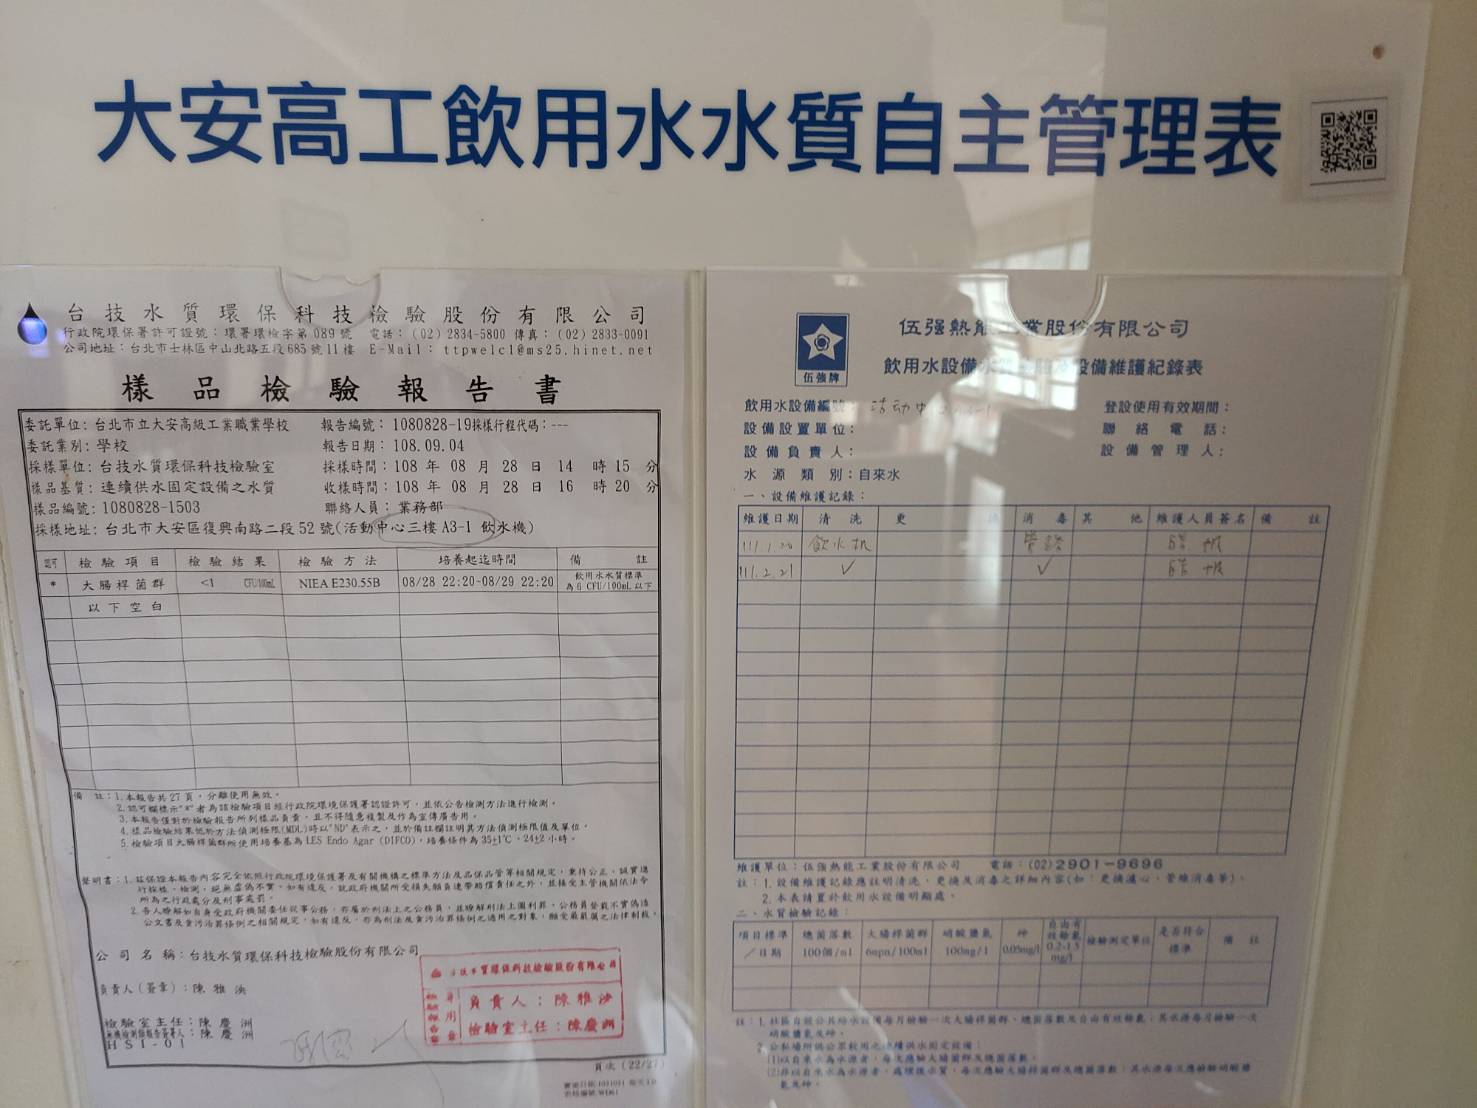 大安高工飲用水水質自主管理表
台技水質環保科技檢驗股份有限公司
行政院環保署許可證號：環署環檢字第089號 電話：(02)2834-5800 傳真：(02)2833-0091
公司地址：台北市士林區中山北路五段685號11樓 E-Mail：ttpwelcl@ms25.hinet.net
樣品檢驗報告書
委託單位：台北市立大安高級工業職業學校 報告編號：1080828-19採樣行程代碼：---
委託業別：學校 報告日期：108.09.04
採樣單位：台技水質環保科技檢驗室 採樣時間：108 年 08 月 28 日 14 時 15 分
樣品基質：連續供水固定設備之水質 收樣時間：108 年 08 月 28 日 16 時 20 分
樣品編號：1080828-1503 聯絡人員：業務部
採樣地址：台北市大安區復興南路二段52號(活動中心三樓 A3-1 飲水機)
檢驗項目 檢驗結果 檢驗方法 培養起迄時間 備註
* 大腸桿菌群 <1 CFU/100mL NIEA E230.55B 08/28 22:20-08/29 22:20 飲用水水質標準
為6 CFU/100mL以下
以下空白
備 註：1.本報告共27頁，分離使用無效。
2.認可欄標示"*"者為該檢驗項目經行政院環境保護署認證許可，並依公告檢測方法進行檢測。
3.本報告僅對於檢驗報告所列樣品負責，且不得隨意複製及作為宣傳廣告用。
4.樣品檢驗結果低於方法偵測極限(MDL)時以"ND"表示之，並於備註欄註明其方法偵測極限值及單位。
5.檢驗項目大腸桿菌群所使用培養基為LES Endo Agar (DIFCO)，培養條件為35±1℃、24±2小時。
聲明書：1.茲保證本報告內容完全依照行政院環境保護署及有關機構之標準方法及品保品管等相關規定，秉持公正、誠實進
行採樣、檢測，絕無虛偽不實，如有違反，就政府機關所受損失願負連帶賠償責任之外，並接受主管機關依法令
所為之行政處分及刑事處罰。
2.吾人瞭解如自身受政府機關委任從事公務，亦屬於刑法上之公務員，並瞭解刑法上圖利罪、公務員登載不實偽造
公文書及貪污治罪條例之相關規定，如有違反，亦為刑法及貪污治罪條例之適用之對象，願受最嚴厲之法律制裁。
公司名稱：台技水質環保科技檢驗股份有限公司
負責人（簽章）：陳雅泱
檢驗室主任：陳慶洲
無機檢測類報告簽署人：陳慶洲
HSI-01
台技水質環保科技檢驗股份有限公司
負責人：陳雅泱
檢驗室主任：陳慶洲
頁次（22/27）
伍強牌
伍強熱能工業股份有限公司
飲用水設備水質 設備維護紀錄表
飲用水設備編號： 登設使用有效期間：
設備設置單位： 聯絡電話：
設備負責人： 設備管理人：
水源類別：自來水
一、設備維護記錄：
維護日期 清洗 更換 消毒 其他 維護人員簽名 備註
111.1.20 飲水机 管路
111.2.21 ✓ ✓
維護單位：伍強熱能工業股份有限公司 電話：(02)2901-9696
註：1.設備維護記錄應註明清洗、更換及消毒之詳細內容(如：更換濾心、管線消毒等)。
2.本表請置於飲用水設備明顯處。
二、水質檢驗記錄：
項目標準／日期 總菌落數 100個/ml 大腸桿菌群 6mpn/100ml 硝酸鹽氮 100mg/l 砷 0.05mg/l 自由有效餘氯 0.2-1.5 mg/l 檢驗測定單位 是否符合標準 備註